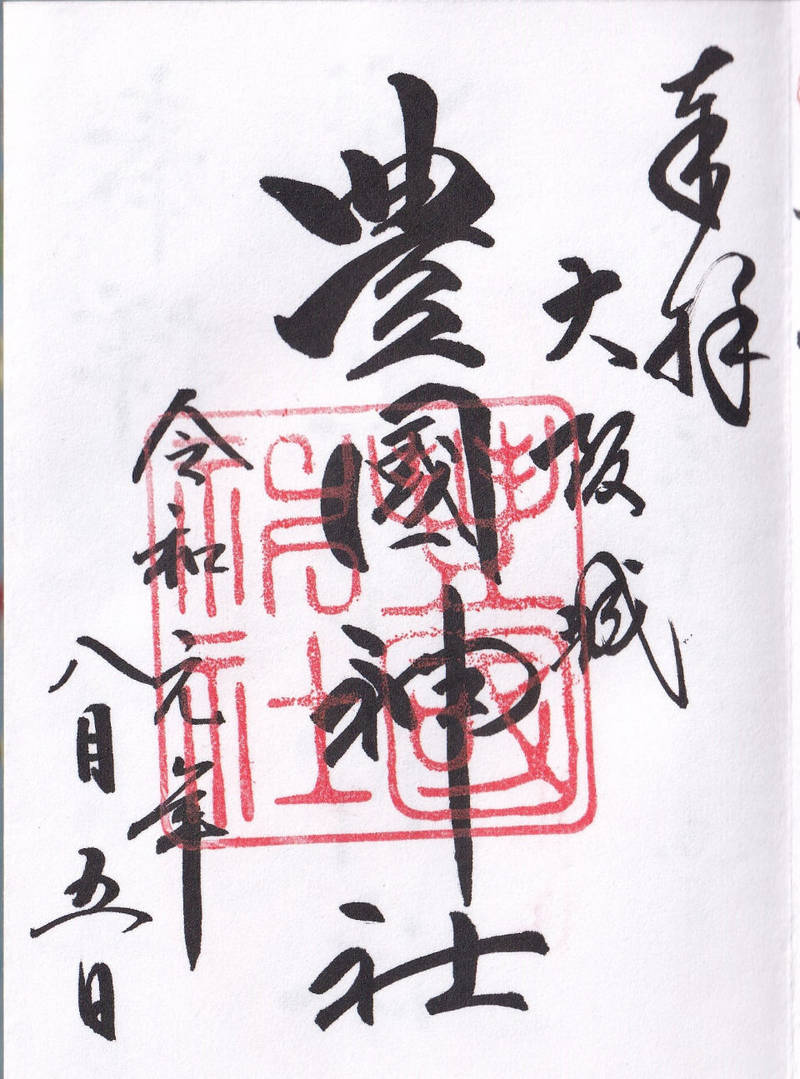 奉拝
大阪城
豊國神社
豊國神社
令和元年
八月五日